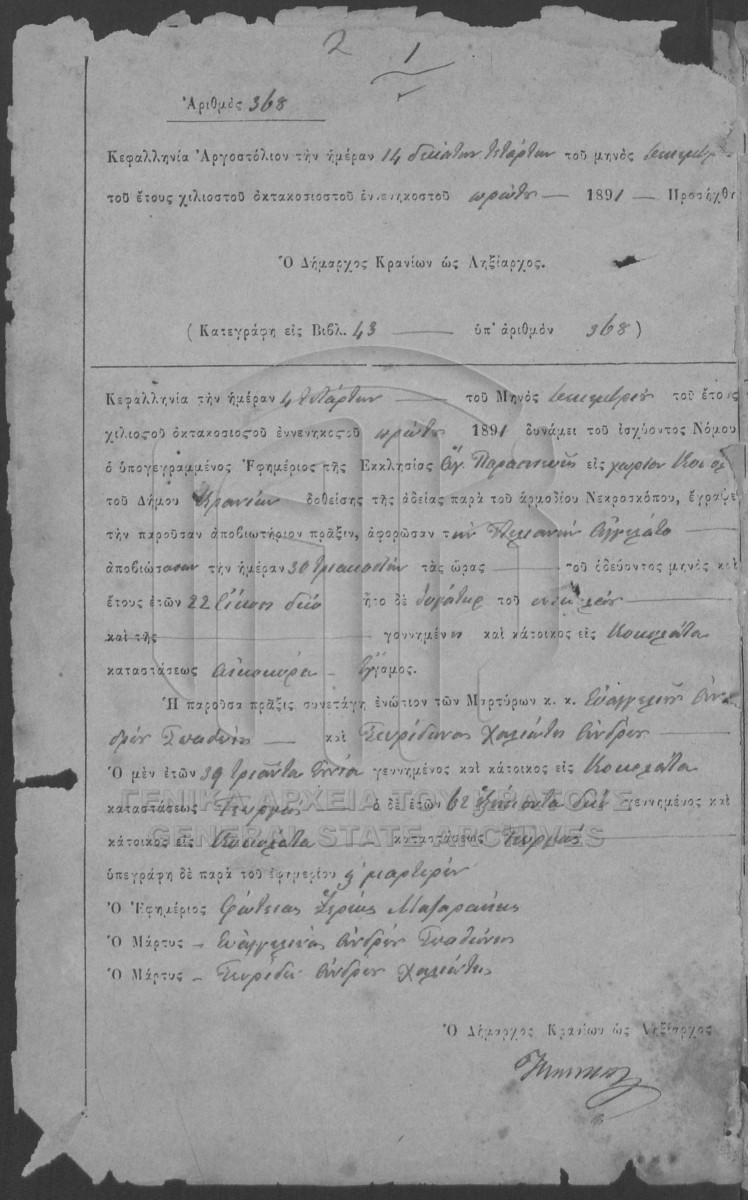 2 1
Ἀριθμὸς 368
Κεφαλληνία Ἀργοστόλιον τὴν ἡμέραν 14 δεκάτην τετάρτην τοῦ μηνὸς
τοῦ ἔτους χιλιοστοῦ ὀκτακοσιοστοῦ ἐννενηκοστοῦ πρώτου — 1891 — Προσήχθη
Ὁ Δήμαρχος Κρανίων ὡς Ληξίαρχος.
(Κατεγράφη εἰς Βιβλ. 43 — ὑπ' ἀριθμὸν 368)
Κεφαλληνία τὴν ἡμέραν 4 τετάρτην — τοῦ Μηνὸς τοῦ ἔτους
χιλιοςοῦ ὀκτακοσιοςοῦ ἐννενηκοςοῦ πρώτου 1891 δυνάμει τοῦ ἰσχύοντος Νόμου
ὁ ὑπογεγραμμένος Ἐφημέριος τῆς Ἐκκλησίας Ἁγ. Παρασκευῆς εἰς χωρίον
τοῦ Δήμου Κρανίων δοθείσης τῆς ἀδείας παρὰ τοῦ ἁρμοδίου Νεκροσκόπου, ἔγραψε
τὴν παροῦσαν ἀποβιωτήριον πρᾶξιν, ἀφορῶσαν τὴν —
ἀποβιώσασαν τὴν ἡμέραν 30 τριακοστὴν τὰς ὥρας — τοῦ ὁδεύοντος μηνὸς καὶ
ἔτους ἐτῶν 22 εἴκοσι δύο ἦτο δὲ θυγάτηρ τοῦ —
καὶ τῆς — γεννημένη καὶ κάτοικος εἰς Κοκολάτα
καταστάσεως οἰκοκυρὰ — ἔγγαμος.
Ἡ παροῦσα πρᾶξις συνετάγη ἐνώπιον τῶν Μαρτύρων κ. κ. Εὐαγγελινὸς Ἀν
δρέου — καὶ Σπυρίδωνος Χαλιώτης Ἀνδρέου —
Ὁ μὲν ἐτῶν 39 τριάντα ἐννέα γεννημένος καὶ κάτοικος εἰς Κοκολάτα
καταστάσεως Γεωργὸς — ὁ δὲ ἐτῶν 62 ἑξήκοντα δύο γεννημένος καὶ
κάτοικος εἰς Κοκολάτα καταστάσεως Γεωργὸς
ὑπεγράφη δὲ παρὰ τοῦ ἐφημερίου μαρτύρων
Ὁ Ἐφημέριος Φώτειος Ἱερεὺς Μαζαράκης
Ὁ Μάρτυς – Εὐαγγελινὸς Ἀνδρέου
Ὁ Μάρτυς – Σπυρίδων Ἀνδρέου Χαλιώτης
Ὁ Δήμαρχος Κρανίων ὡς Ληξίαρχος
ΓΕΝΙΚΑ ΑΡΧΕΙΑ ΤΟΥ ΚΡΑΤΟΥΣ
GENERAL STATE ARCHIVES